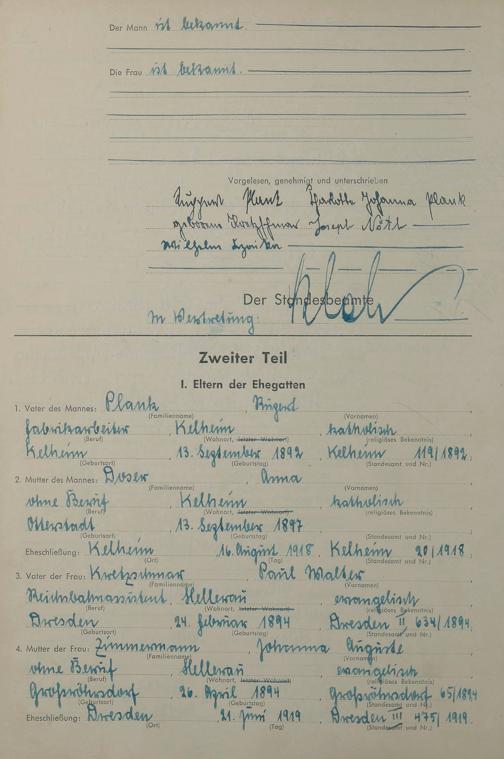 Der Mann ist bekannt.
Die Frau ist bekannt.
Vorgelesen, genehmigt und unterschrieben
Plank Charlotte Johanna Plank
geborene Kretzschmar Josef
Wilhelm
Der Standesbeamte
In Vertretung:
Zweiter Teil
I. Eltern der Ehegatten
1. Vater des Mannes: Plank
(Familienname) (Vornamen)
Fabrikarbeiter, Kelheim, katholisch
(Beruf) (Wohnort, letzter Wohnort) (religiöses Bekenntnis)
Kelheim, 13. September 1892, Kelheim 119/1892
(Geburtsort) (Geburtstag) (Standesamt und Nr.)
2. Mutter des Mannes: Doser, Anna
(Familienname) (Vornamen)
ohne Beruf, Kelheim, katholisch
(Beruf) (Wohnort, letzter Wohnort) (religiöses Bekenntnis)
Otterstadt, 13. September 1897
(Geburtsort) (Geburtstag) (Standesamt und Nr.)
Eheschließung: Kelheim, 16. August 1918, Kelheim 20/1918
(Ort) (Tag) (Standesamt und Nr.)
3. Vater der Frau: Kretzschmar, Paul Walter
(Familienname) (Vornamen)
Reichsbahnassistent, Hellerau, evangelisch
(Beruf) (Wohnort, letzter Wohnort) (religiöses Bekenntnis)
Dresden, 24. Februar 1894, Dresden II 634/1894
(Geburtsort) (Geburtstag) (Standesamt und Nr.)
4. Mutter der Frau: Zimmermann, Johanna Auguste
(Familienname) (Vornamen)
ohne Beruf, Hellerau, evangelisch
(Beruf) (Wohnort, letzter Wohnort) (religiöses Bekenntnis)
Großröhrsdorf, 26. April 1894, Großröhrsdorf 65/1894
(Geburtsort) (Geburtstag) (Standesamt und Nr.)
Eheschließung: Dresden, 21. Juni 1919, Dresden III 475/1919
(Ort) (Tag) (Standesamt und Nr.)